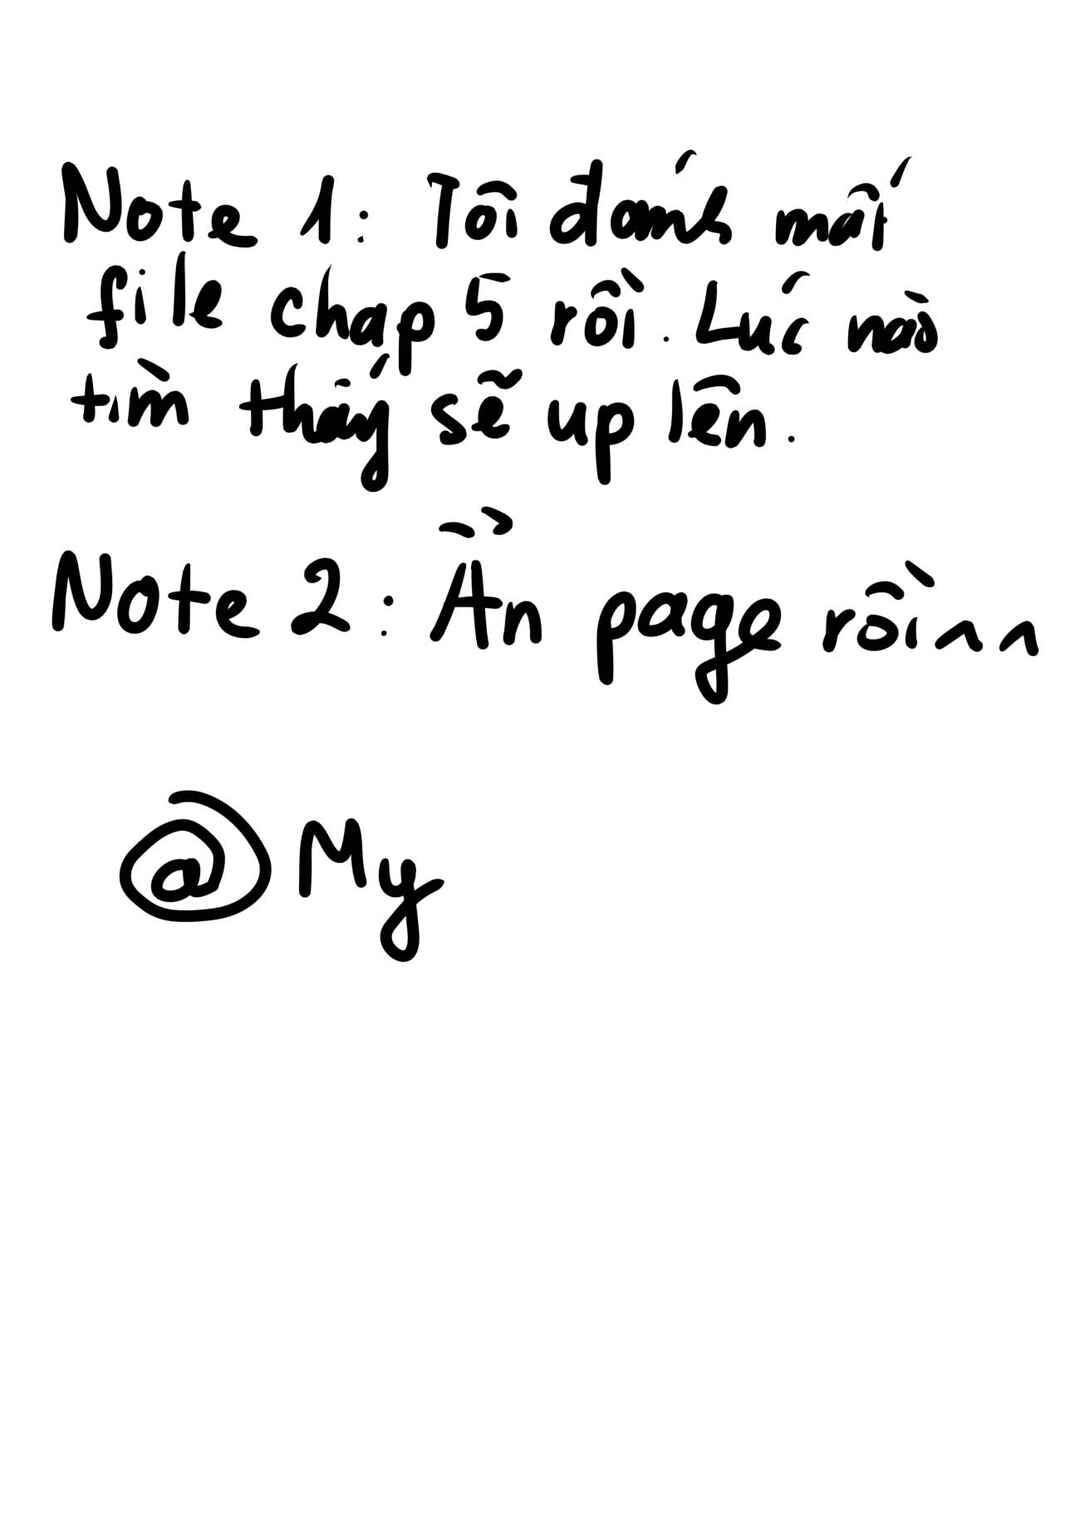 Note 1: Tôi đánh mất
file chap 5 rồi. Lúc nào
tìm thấy sẽ up lên.
Note 2: Ẩn page rồi^^
@My